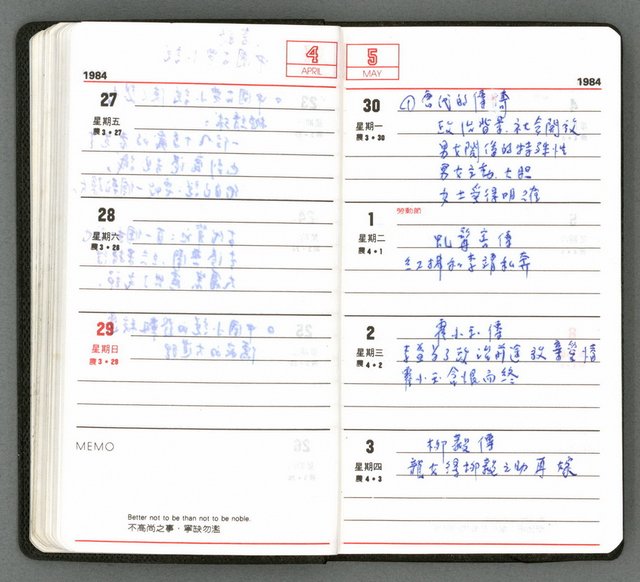 4
APRIL
1984
27
星期五
農3·27
28
星期六
農3·28
29
星期日
農3·29
MEMO
Better not to be than not to be noble.
不高尚之事，寧缺勿濫
5
MAY
1984
30
星期一
農3·30
① 唐代的傳奇
政治背景.社会開放
男女關係的特殊性
男女主動、大胆
女士受得
1
勞動節
星期二
農4·1
虬髯客傳
紅拂和李靖私奔
2
星期三
農4·2
霍小玉傳
李益為了政治前途 放棄愛情
霍小玉含恨而終
3
星期四
農4·3
柳毅傳
龍女得柳毅之助 再嫁